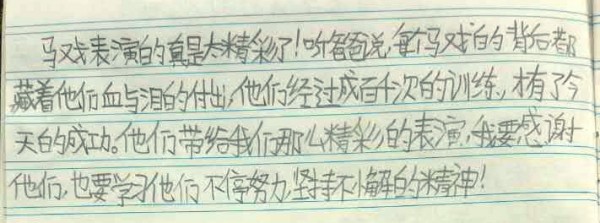 马戏表演的真是太精彩了!听爸爸说,每个马戏的背后都
藏着他们血与泪的付出,他们经过成百千次的训练,才有了今
天的成功。他们带给我们那么精彩的表演,我要感谢
他们,也要学习他们不停努力,坚持不懈的精神!